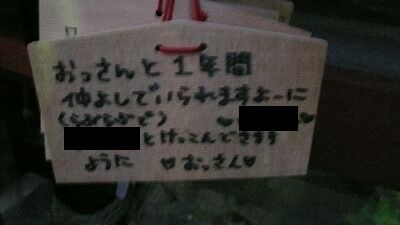 おっさんと1年間
仲よしでいられますよーに
(らぶらぶで) ♥ ♥
とけっこんできます
ように ♥おっさん♥